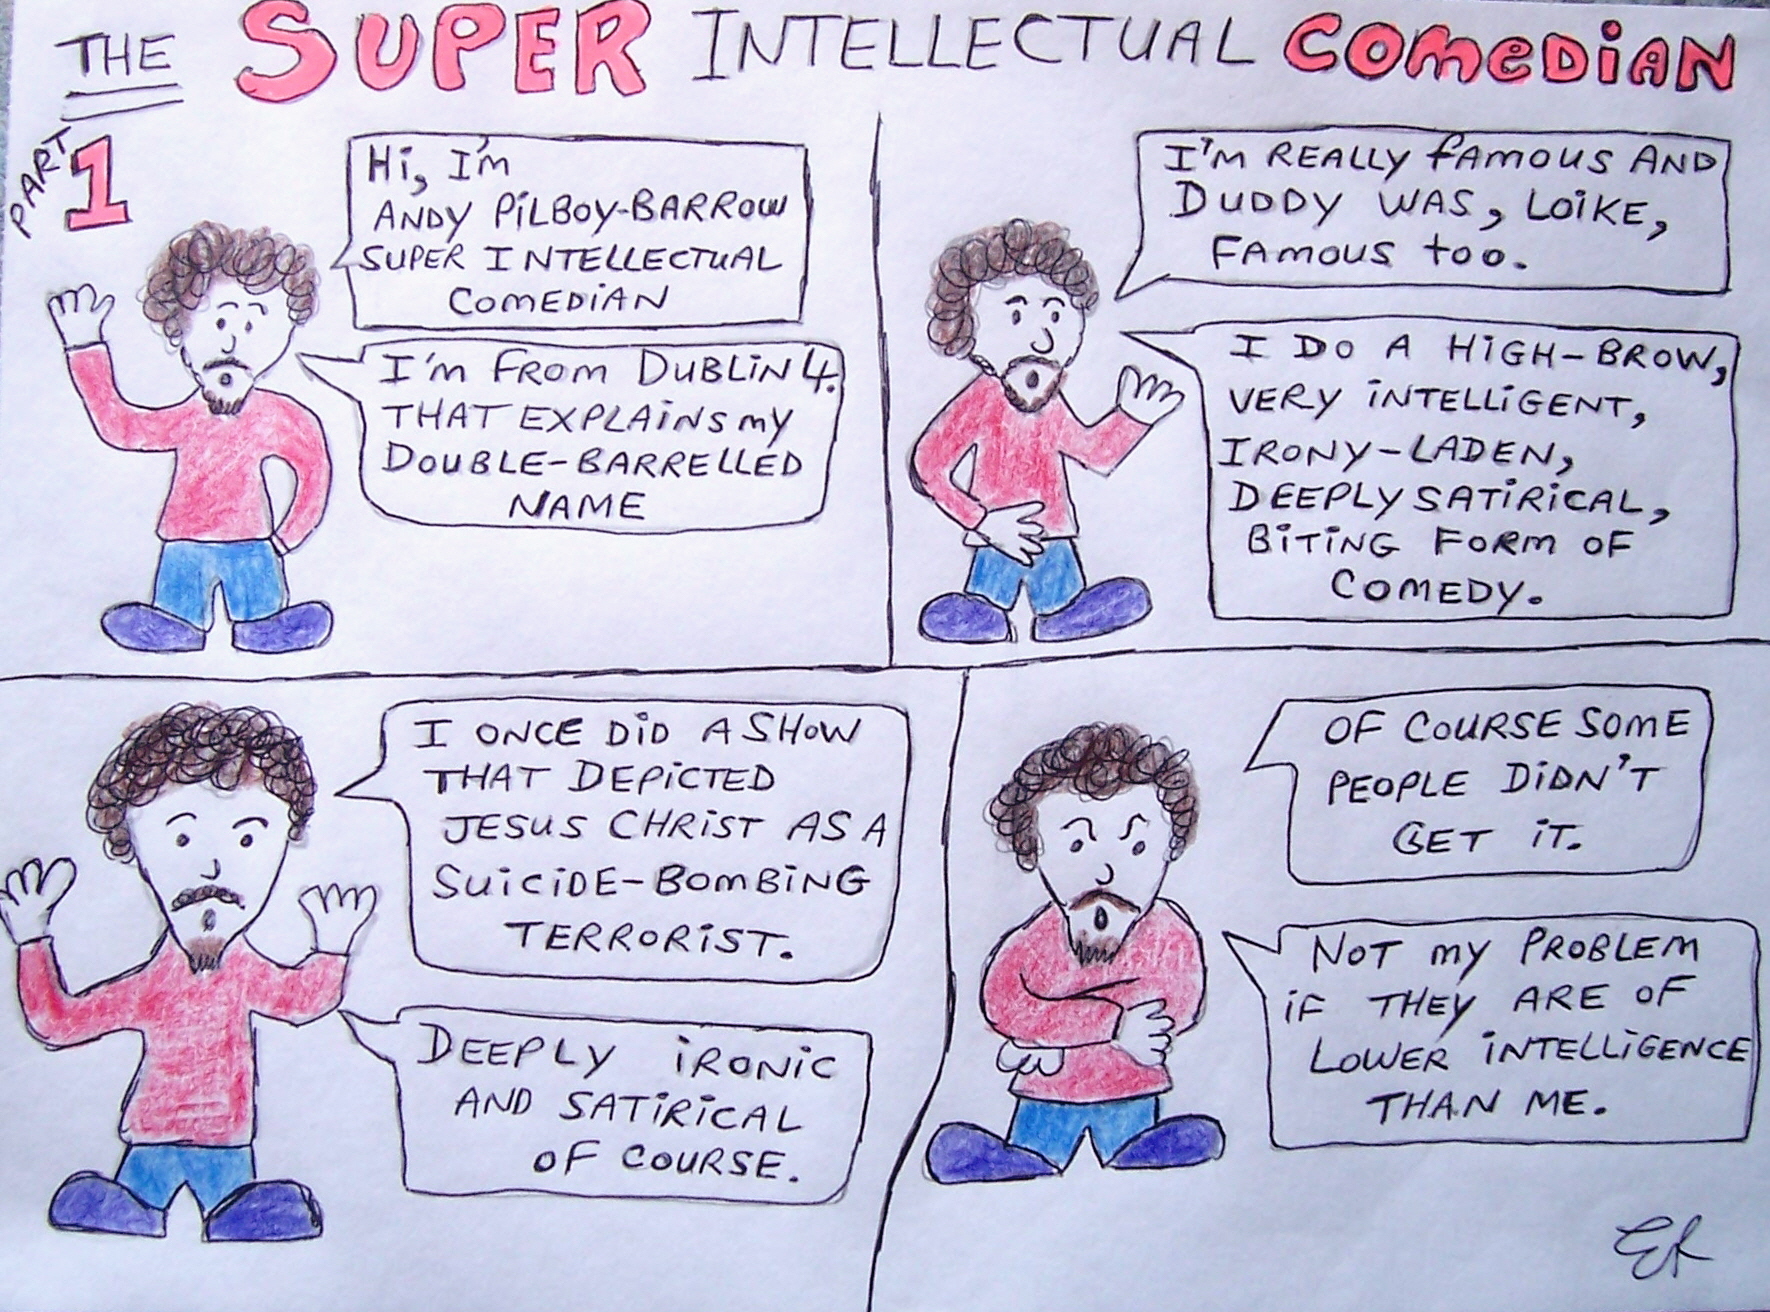 THE SUPER INTELLECTUAL COMEDIAN
PART 1
Hi, I'm
ANDY PILBOY-BARROW
SUPER INTELLECTUAL
COMEDIAN
I'm FROM DUBLIN 4.
THAT EXPLAINS my
DOUBLE-BARRELLED
NAME
I'M REALLY FAMOUS AND
DUDDY WAS, LOIKE,
FAMOUS too.
I DO A HIGH-BROW,
VERY INTELLIGENT,
IRONY-LADEN,
DEEPLY SATIRICAL,
BITING FORM OF
COMEDY.
I ONCE DID A SHOW
THAT DEPICTED
JESUS CHRIST AS A
SUICIDE-BOMBING
TERRORIST.
DEEPLY IRONIC
AND SATIRICAL
OF COURSE.
OF COURSE SOME
PEOPLE DIDN'T
GET IT.
NOT my PROBLEM
IF THEY ARE OF
LOWER INTELLIGENCE
THAN ME.